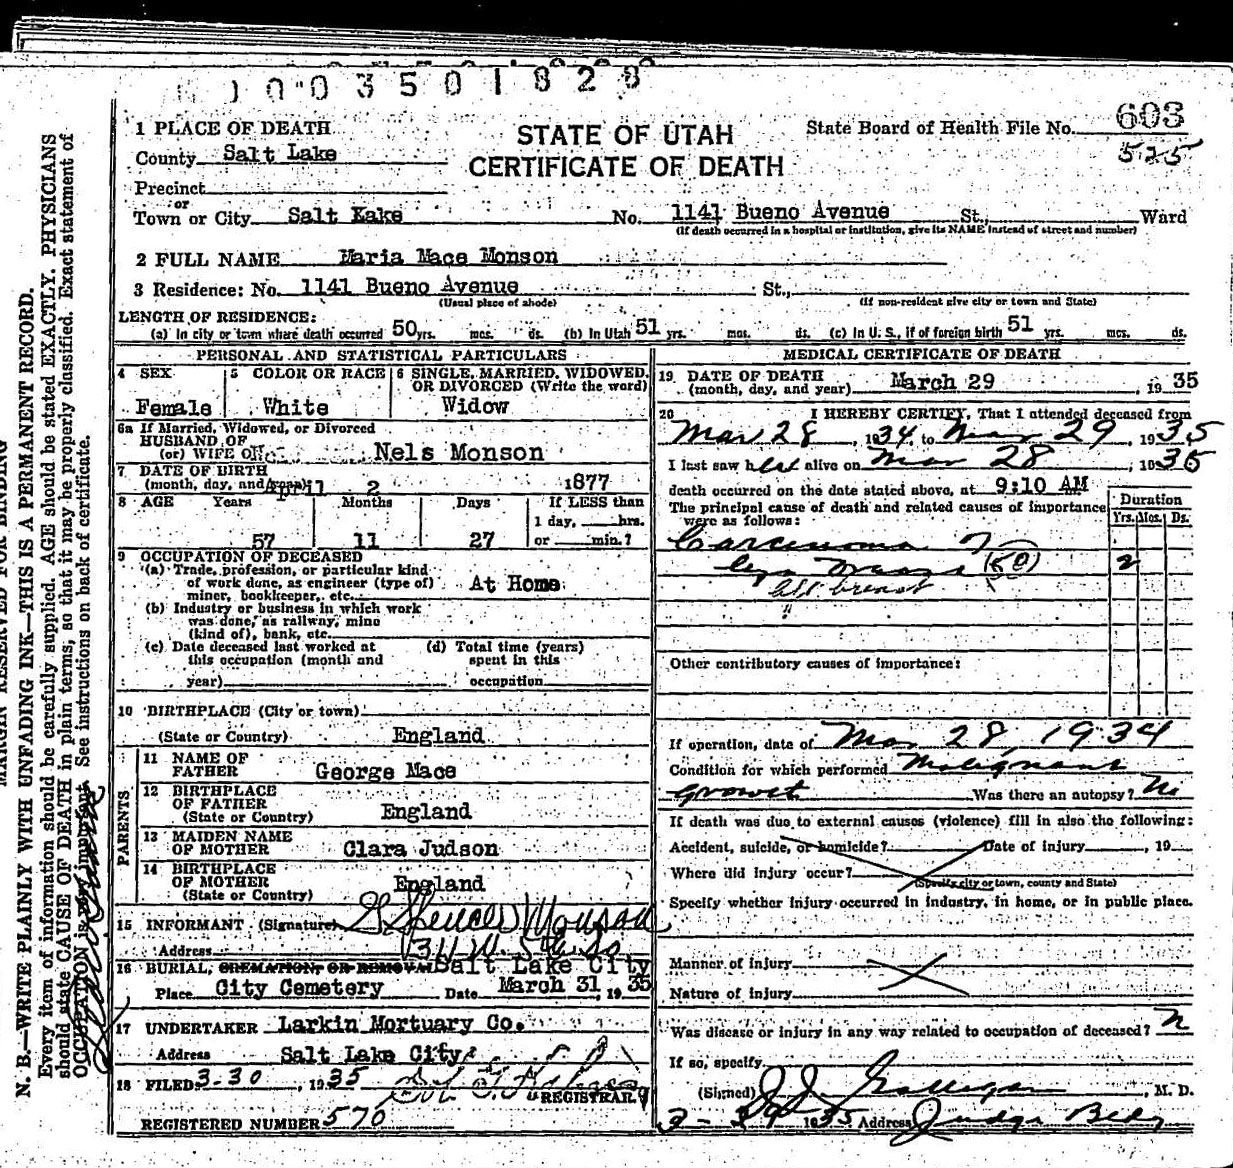 1003501828
603
525
1 PLACE OF DEATH
STATE OF UTAH
CERTIFICATE OF DEATH
State Board of Health File No.
County Salt Lake
Precinct
or
Town or City Salt Kake No. 1141 Bueno Avenue St., Ward
(If death occurred in a hospital or institution, give its NAME instead of street and number)
2 FULL NAME Maria Mace Monson
3 Residence: No. 1141 Bueno Avenue St.,
(Usual place of abode) (If non-resident give city or town and State)
LENGTH OF RESIDENCE:
(a) In city or town where death occurred 50 yrs. mos. ds. (b) In Utah 51 yrs. mos. ds. (c) In U. S., if of foreign birth 51 yrs. mos. ds.
PERSONAL AND STATISTICAL PARTICULARS
4 SEX
Female
5 COLOR OR RACE
White
6 SINGLE, MARRIED, WIDOWED,
OR DIVORCED (Write the word)
Widow
6a If Married, Widowed, or Divorced
HUSBAND OF
(or) WIFE OF Nels Monson
7 DATE OF BIRTH
(month, day, and year) April 2 1877
8 AGE Years Months Days If LESS than
1 day, hrs.
57 11 27 or min.?
9 OCCUPATION OF DECEASED
(a) Trade, profession, or particular kind
of work done, as engineer (type of) At Home
miner, bookkeeper, etc.
(b) Industry or business in which work
was done, as railway, mine
(kind of), bank, etc.
(c) Date deceased last worked at (d) Total time (years)
this occupation (month and spent in this
year) occupation
10 BIRTHPLACE (City or town)
(State or Country) England
PARENTS
11 NAME OF
FATHER George Mace
12 BIRTHPLACE
OF FATHER
(State or Country) England
13 MAIDEN NAME
OF MOTHER Clara Judson
14 BIRTHPLACE
OF MOTHER England
(State or Country)
15 INFORMANT (Signature) G Spencer Monson
Address 311 N. 5th So
16 BURIAL, CREMATION OR REMOVAL Salt Lake City
Place City Cemetery Date March 31, 1935
17 UNDERTAKER Larkin Mortuary Co.
Address Salt Lake City
18 FILED 3-30, 1935
REGISTRAR
REGISTERED NUMBER 570
MEDICAL CERTIFICATE OF DEATH
19 DATE OF DEATH
(month, day, and year) March 29, 1935
20 I HEREBY CERTIFY, That I attended deceased from
Mar 28, 1934, to Mar 29, 1935
I last saw her alive on Mar 28, 1935
death occurred on the date stated above, at 9:10 AM
The principal cause of death and related causes of importance
were as follows:
Duration
Yrs. Mos. Ds.
Carcinoma of
(50) 2
left breast
"
Other contributory causes of importance:
If operation, date of Mar 28, 1934
Condition for which performed Malignant
growth Was there an autopsy? No
If death was due to external causes (violence) fill in also the following:
Accident, suicide, or homicide? Date of injury , 19
Where did injury occur?
(Specify city or town, county and State)
Specify whether injury occurred in industry, in home, or in public place.
Manner of injury
Nature of injury
Was disease or injury in any way related to occupation of deceased? N
If so, specify
(Signed) J J Galligan, M. D.
3-29 1935 Address Judge Bldg
MARGIN RESERVED FOR BINDING
N. B.—WRITE PLAINLY WITH UNFADING INK—THIS IS A PERMANENT RECORD.
Every item of information should be carefully supplied. AGE should be stated EXACTLY. PHYSICIANS
should state CAUSE OF DEATH in plain terms, so that it may be properly classified. Exact statement of
OCCUPATION is very important. See instructions on back of certificate.